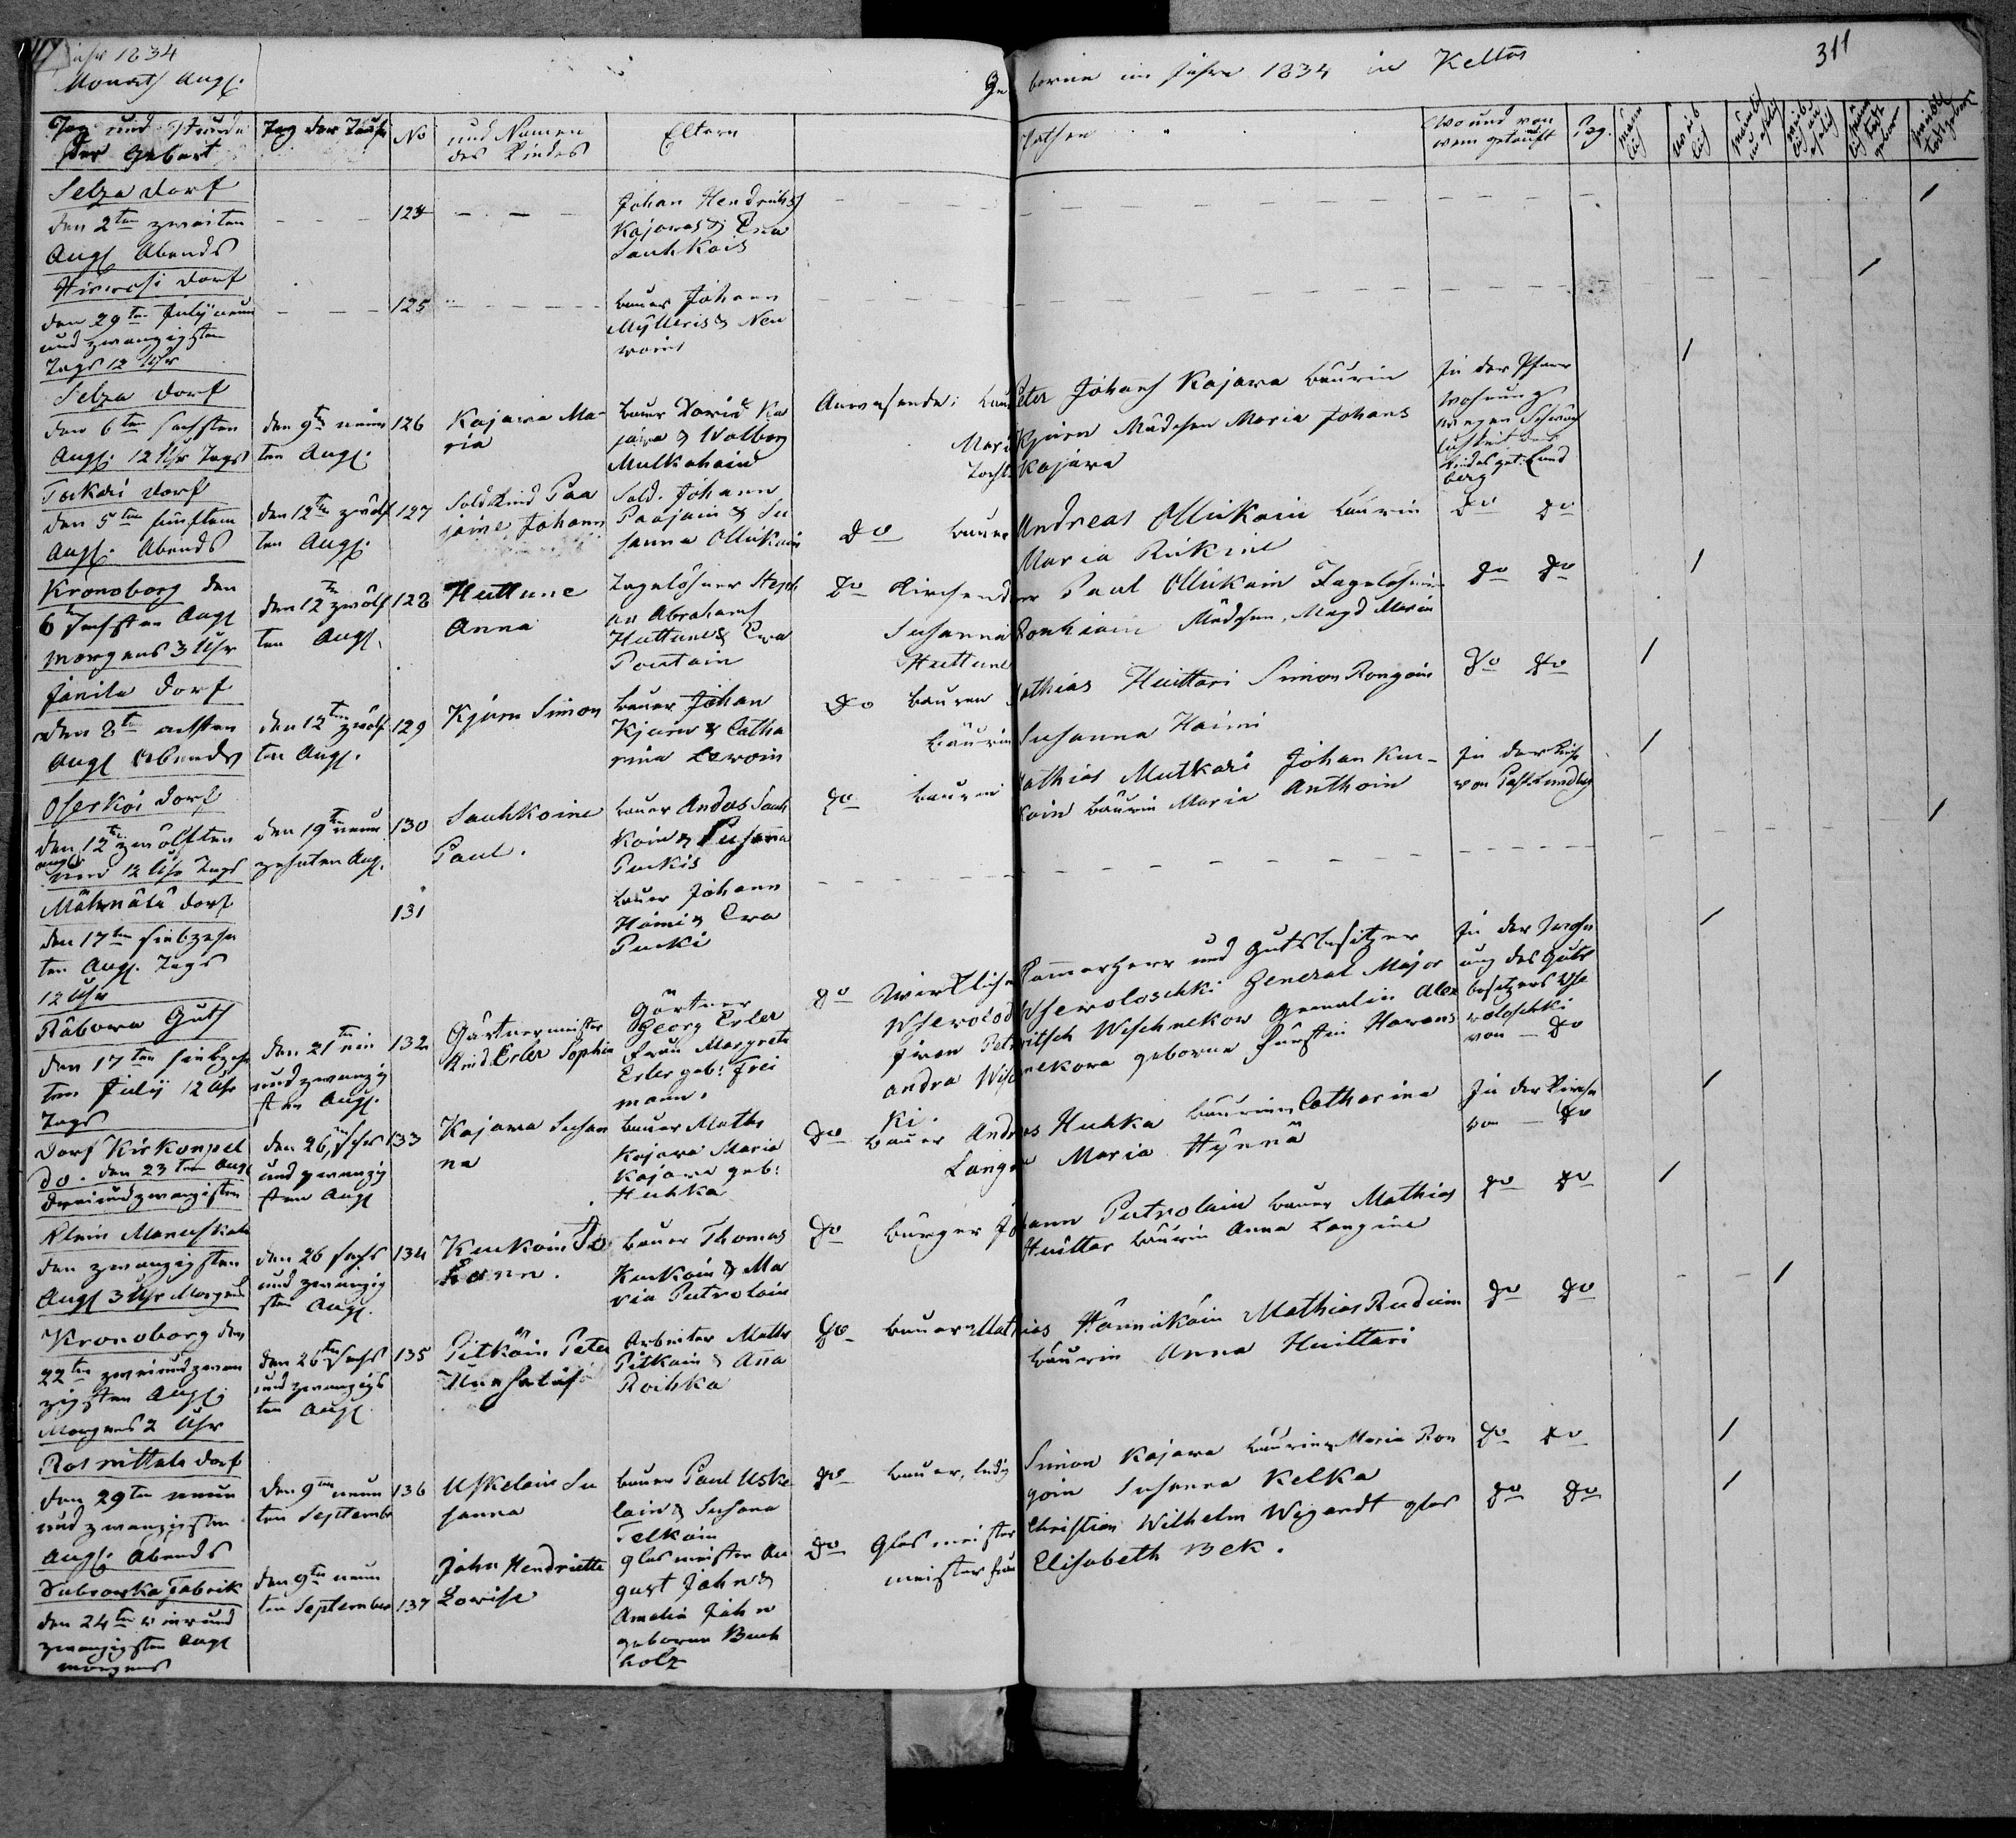 Jahr 1834
Monath Augs.
Geborene im Jahre 1834 in Keltos
311
Tag und Stunde der Geburt
Tag der Taufe
No
und Namen des Kindes
Eltern
Pathen
Wo und von wem getauft
Pag.
männ lich
weib lich
männlich unehelich
weib lich un ehelich
männ lich todt gebor
weibl todtgebor
Selza Dorf
den 2ten zweiten
Augs Abends
124
Johan Hendrikss
Kajawas & Ewa
Sauhkois
Dorf
den 29ten July neun
und zwanzigsten
Tags 12 Uhr
125
Bauer Johann
Mylleris & Neu
woins
Selza Dorf
den 6ten sechsten
Augs. 12 Uhr Tags
den 9ten neun
ten Augs.
126
Kajawa Ma-
ria
Bauer David Ka
jawa & Walborg
Mulkahain
Anwesende: Bauer Peter Johans Kajawa Bäurin
Maria Kjuru Mädchen Maria Johans
Tocht. Kajawa
In der Pfarr
Wohnung
wegen Schwäch
lichkeit des
Kindes get. Lund
berg
Torkari Dorf
den 5ten fünften
Augs. Abends
den 12ten zwölf
ten Augs.
127
Sold. Kind Paa
jaine Johann
Sold. Johann
Paajain & Su
sanna Ollikain
Do Bauer Andreas Ollikain Bäurin
Maria Rikine
Do Do
Kronoborg den
6ten sechsten Augs
Morgens 3 Uhr
den 12ten zwölf
ten Augs.
128
Huttune
Anna
Tagelöhner Steph
an Abrahams
Huttune & Ewa
Poutain
Do Kirchendiener Paul Ollikain Tagelöhnerin
Susanna Ronkain Mädchen, Magd Maria
Huttune
Do Do
Janila Dorf
den 8ten achten
Augs Abends
den 12ten zwölf
ten Augs.
129
Kjuru Simon
Bauer Johan
Kjuru & Catha
rina Lewoin
Do Bauren Mathias Huittari Simon Rongain
Bäurin Susanna Haimi
Do Do
Oserkoi Dorf
den 12ten zwölften
augs
und 12 Uhr Tags
den 19ten neun
zehnten Aug.
130
Sauhkoine
Paul.
Bauer Andas Sauh
koin & Susanna
Purkis
Do Bauren Mathias Mutkari Johan Kur-
koin Bäurin Maria Anthoin
In der Kirche
von Past. Lundberg
Mähnälä Dorf
den 17ten siebzehn
ten Augs. Tags
12 Uhr
131
Bauer Johann
Haimi & Ewa
Purki
Räbowa Guth
den 17ten siebzehn
ten July 12 Uhr
Tags
den 21ten ein
und zwanzig
sten Augs.
132
Gärtnermeister
Kind Erler Sophie
Gärtner
Georg Erler
Frau Margreta
Erler geb: Frei
mann.
Do Wirkliche Kammerherr und Gutsbesitzer
Wsewolod Wsewoloschki General Major
Iwan Petrowitsch Wischnekow Gemalin Alex
andra Wischnekowa geborne Fürstin Howans
ki.
In der Wohn
ung des Guts
besitzers Wse
woloschki
von — Do
Dorf Kirkonpel
do. den 23ten Augs
dreiundzwanzigsten
den 26ten sechs
und zwanzig
sten Augs
133
Kajawa Susan
na
Bauer Maths
Kajawa Maria
Kajawa geb:
Huhka
Do Bauer Andreas Huhka Bäurinen Catharina
Langen Maria Hynnä
In der Kirche
von — Do
Klein Manuskala
den zwanzigsten
Augs 3 Uhr Morgens
den 26 sechs
und zwanzig
sten Augs.
134
Kurkoin Jo
hann.
Bauer Thomas
Kurkoin & Ma
ria Putrolain
Do Bürger Johann Putrolain Bauer Mathias
Huittar Bäurin Anna Langine
Do Do
Kronoborg den
22ten zweiundzwan
zigsten Augs.
Morgens 2 Uhr
den 26ten sechs
und zwanzigs
ten Augs
135
Pitköin Peter
Unehelich
Arbeiter Maths
Pitkain & Anna
Roihka
Do Bauer Mathias Hännikain Mathias Rudim
Bäurin Anna Huittari
Do Do
Dorf
den 29ten neun
und zwanzigsten
Augs. Abends
den 9ten neun
ten September
136
Uskelain Su
sanna
Bauer Paul Uske
lain & Susana
Telkain
Do Bauer, ledig Simon Kajawa Bäurinen Maria Ron
goin Susanna Kelka
Do Do
Dubrowka Fabrik
den 24ten vierund
zwanzigsten Augs
morgens
den 9ten neun
ten September
137
Jahn Hendriette
Lowise
Glasmeister Au
gust Jahn &
Amalia Jahn
geborene Buch
holz
Do Glasmeister Christian Wilhelm Wigandt glas
meister frau Elisabeth Bek.
Do Do